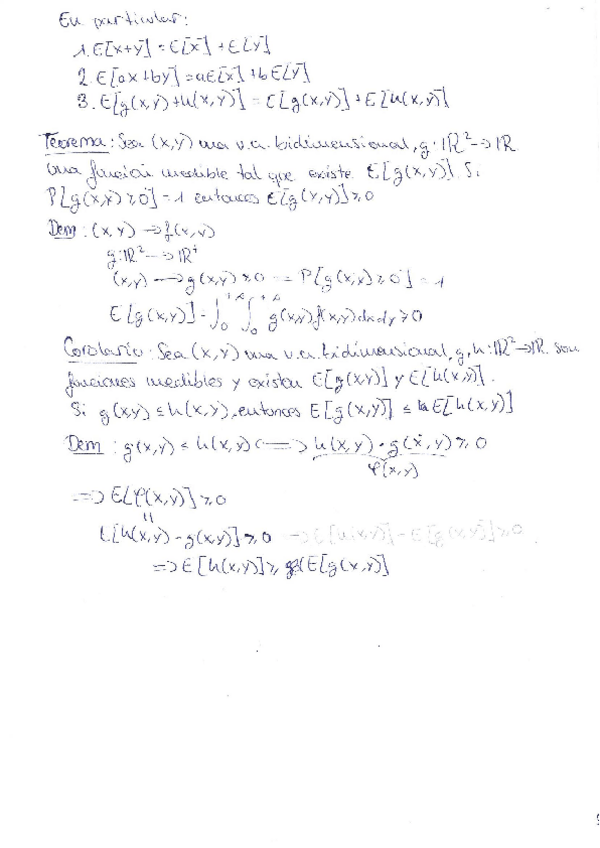 En particular:
1. E[x+y] = E[x] + E[y]
2. E[ax+by] = aE[x] + bE[y]
3. E[g(x,y)+h(x,y)] = E[g(x,y)] + E[h(x,y)]
Teorema: Sea (x,y) una v.a. bidimensional, g: ℝ² → ℝ
una función medible tal que existe E[g(x,y)]. Si
P[g(x,y) ≥ 0] = 1 entonces E[g(x,y)] ≥ 0
Dem: (x,y) → f(x,y)
g: ℝ² → ℝ⁺
(x,y) → g(x,y) ≥ 0 = P[g(x,y) ≥ 0] = 1
E[g(x,y)] = ∫₀^{+∞} ∫₀^{+∞} g(x,y) f(x,y) dx dy ≥ 0
Corolario: Sea (x,y) una v.a. bidimensional, g, h: ℝ² → ℝ son
funciones medibles y existan E[g(x,y)] y E[h(x,y)].
Si g(x,y) ≤ h(x,y), entonces E[g(x,y)] ≤ E[h(x,y)]
Dem: g(x,y) ≤ h(x,y) ⟺ h(x,y) - g(x,y) ≥ 0
φ(x,y)
⟹ E[φ(x,y)] ≥ 0
E[h(x,y) - g(x,y)] ≥ 0 ⟹ E[h(x,y)] - E[g(x,y)] ≥ 0
⟹ E[h(x,y)] ≥ E[g(x,y)]